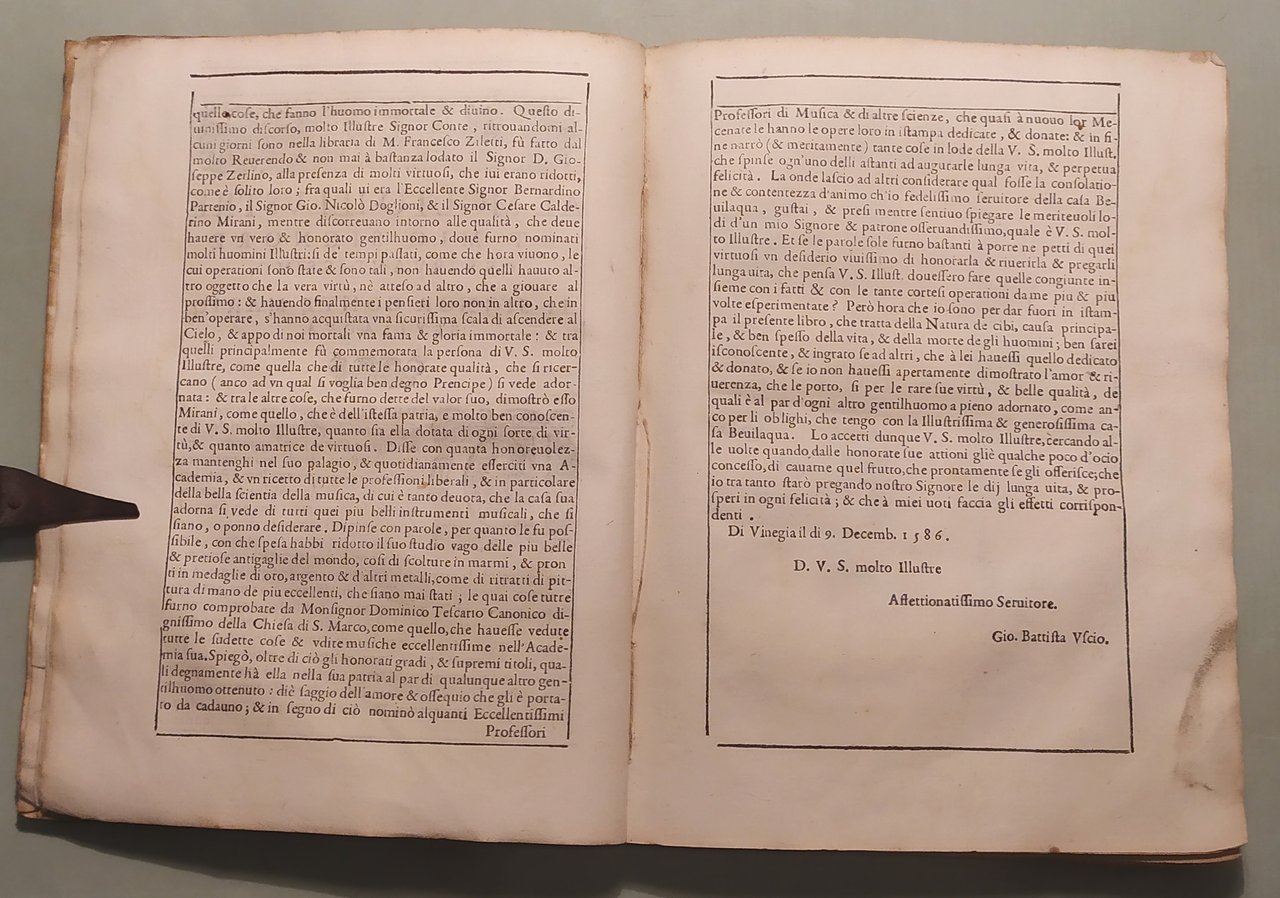 quelle cose, che fanno l'huomo immortale & diuino. Questo di-
uinissimo discorso, molto Illustre Signor Conte, ritrouandomi al-
cuni giorni sono nella libraria di M. Francesco Ziletti, fù fatto dal
molto Reuerendo & non mai à bastanza lodato il Signor D. Gio-
seppe Zerlino, alla presenza di molti virtuosi, che iui erano ridotti,
come è solito loro; fra quali ui era l'Eccellente Signor Bernardino
Partenio, il Signor Gio. Nicolò Doglioni, & il Signor Cesare Calde-
rino Mirani, mentre discorreuano intorno alle qualità, che deue
hauere vn vero & honorato gentilhuomo, doue furno nominati
molti huomini Illustri: si de' tempi passati, come che hora viuono, le
cui operationi sono state & sono tali, non hauendo quelli hauuto al-
tro oggetto che la vera virtù, nè atteso ad altro, che a giouare al
prossimo: & hauendo finalmente i pensieri loro non in altro, che in
ben'operare, s'hanno acquistata vna sicurissima scala di ascendere al
Cielo, & appo di noi mortali vna fama & gloria immortale: & tra
quelli principalmente fù commemorata la persona di V. S. molto
Illustre, come quella che di tutte le honorate qualità, che si ricer-
cano (anco ad vn qual si voglia ben degno Prencipe) si vede ador-
nata: & tra le altre cose, che furno dette del valor suo, dimostrò esso
Mirani, come quello, che è dell'istessa patria, e molto ben conoscen-
te di V. S. molto Illustre, quanto sia ella dotata di ogni sorte di vir-
tù, & quanto amatrice de virtuosi. Disse con quanta honoreuolez-
za mantenghi nel suo palagio, & quotidianamente esserciti vna A-
cademia, & vn ricetto di tutte le professioni liberali, & in particolare
della bella scientia della musica, di cui è tanto deuota, che la casa sua
adorna si vede di tutti quei piu belli instrumenti musicali, che si
siano, o ponno desiderare. Dipinse con parole, per quanto le fu pos-
sibile, con che spesa habbi ridotto il suo studio vago delle piu belle
& pretiose antigaglie del mondo, cosi di scolture in marmi, & pron
ti in medaglie di oro, argento & d'altri metalli, come di ritratti di pit-
tura di mano de piu eccellenti, che siano mai stati; le quai cose tutte
furno comprobate da Monsignor Dominico Tescario Canonico di-
gnissimo della Chiesa di S. Marco, come quello, che hauesse vedute
tutte le sudette cose & vdite musiche eccellentissime nell'Acade-
mia sua. Spiegò, oltre di ciò gli honorati gradi, & supremi titoli, qua-
li degnamente hà ella nella sua patria al par di qualunque altro gen-
tilhuomo ottenuto: diè saggio dell'amore & ossequio che gli è porta-
to da cadauno; & in segno di ciò nominò alquanti Eccellentissimi
Professori
Professori di Musica & di altre scienze, che quasi à nuouo lor Me-
cenate le hanno le opere loro in istampa dedicate, & donate: & in fi-
ne narrò (& meritamente) tante cose in lode della V. S. molto Illust.
che spinse ogn'uno delli astanti ad augurarle lunga vita, & perpetua
felicità. La onde lascio ad altri considerare qual fosse la consolatio-
ne & contentezza d'animo ch'io fedelissimo seruitore della casa Be-
uilaqua, gustai, & presi mentre sentiuo spiegare le meriteuoli lo-
di d'un mio Signore & patrone osseruandissimo, quale è V. S. mol-
to Illustre. Et se le parole sole furno bastanti à porre ne petti di quei
virtuosi vn desiderio viuissimo di honorarla & riuerirla & pregarli
lunga uita, che pensa V. S. Illust. douessero fare quelle congiunte in-
sieme con i fatti & con le tante cortesi operationi da me piu & piu
volte esperimentate? Però hora che io sono per dar fuori in istam-
pa il presente libro, che tratta della Natura de cibi, causa principa-
le, & ben spesso della vita, & della morte de gli huomini; ben sarei
isconoscente, & ingrato se ad altri, che à lei hauessi quello dedicato
& donato, & se io non hauessi apertamente dimostrato l'amor & ri-
uerenza, che le porto, si per le rare sue virtù, & belle qualità, de
quali è al par d'ogni altro gentilhuomo a pieno adornato, come an-
co per li oblighi, che tengo con la Illustrissima & generosissima ca-
sa Beuilaqua. Lo accetti dunque V. S. molto Illustre, cercando al-
le uolte quando dalle honorate sue attioni gliè qualche poco d'ocio
concesso, di cauarne quel frutto, che prontamente se gli offerisce; che
io tra tanto starò pregando nostro Signore le dij lunga uita, & pro-
speri in ogni felicità; & che à miei uoti faccia gli effetti corrispon-
denti.
Di Vinegia il di 9. Decemb. 1586.
D. V. S. molto Illustre
Affettionatissimo Seruitore.
Gio. Battista Vscio.